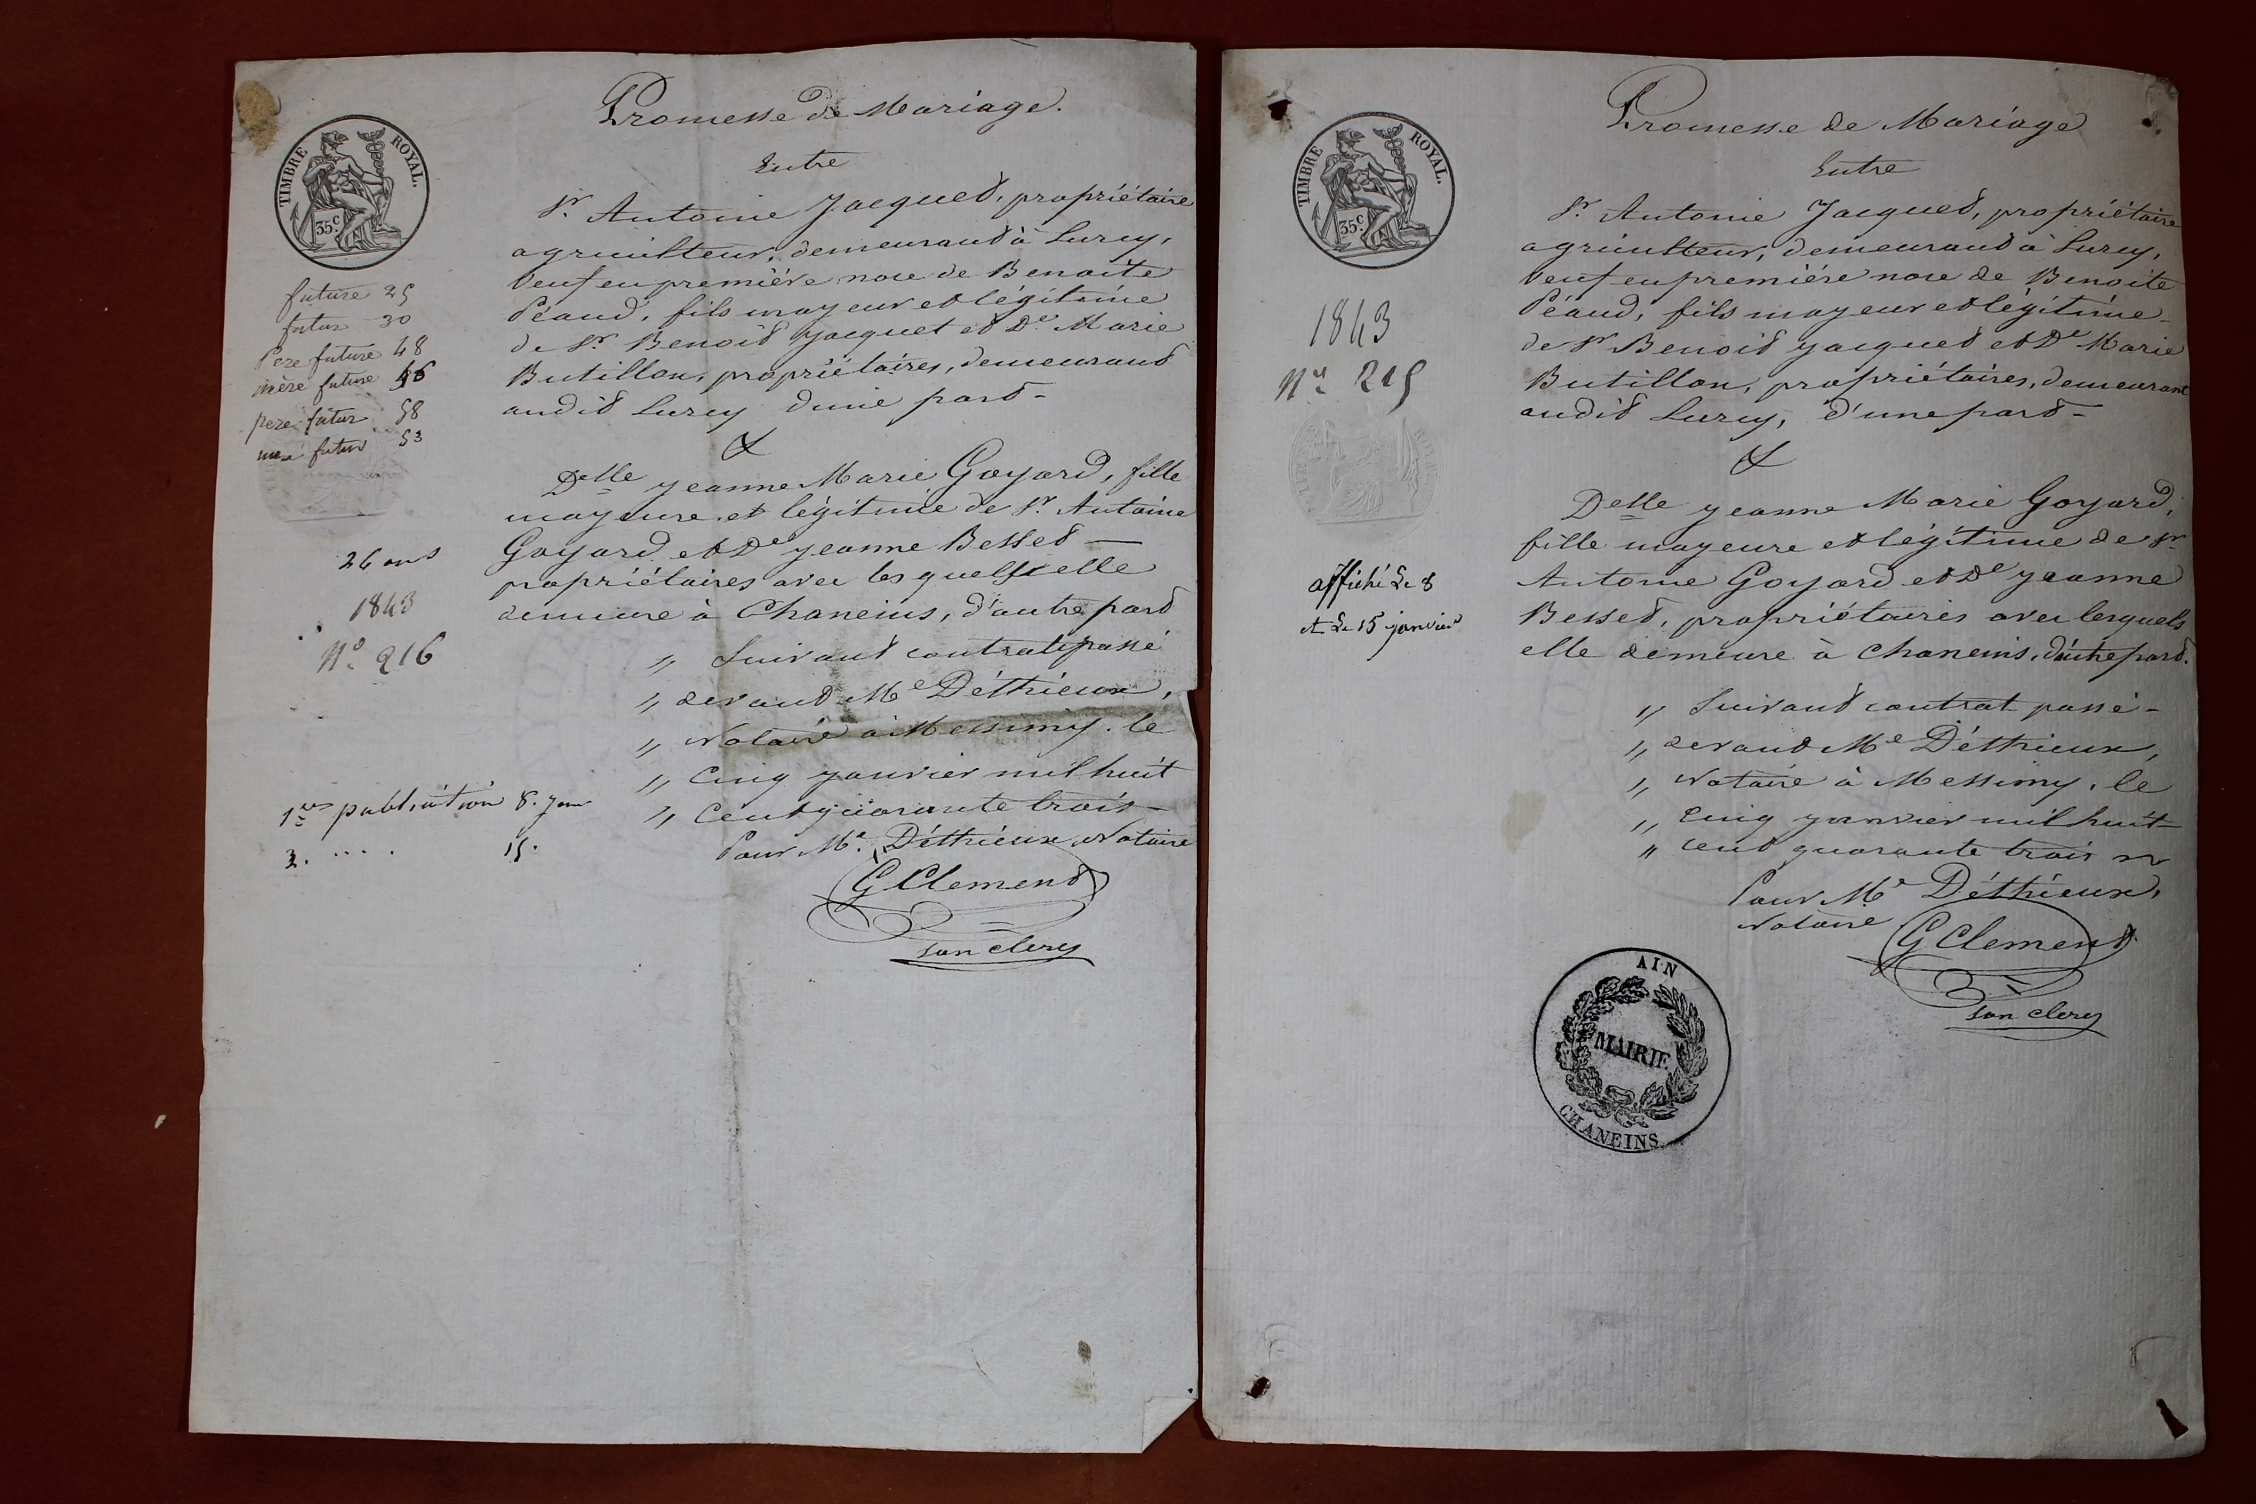 Promesse de Mariage.
Entre
Sr. Antoine Jacquet, propriétaire
agriculteur, demeurant à Lurcy,
veuf en première noce de Benoite
Péaud, fils mayeur et légitime
de Sr Benoit Jacquet et De Marie
Butillon, propriétaires, demeurant
audit Lurcy d'une part -
&
Delle Jeanne Marie Goyard, fille
mayeure et légitime de Sr. Antoine
Goyard et De Jeanne Besset —
propriétaires avec lesquels elle
demeure à Chaneins, d'autre part
„ Suivant contrat passé
„ devant Me Déthieux,
„ Notaire à Messimy, le
„ Cinq janvier mil huit
„ Cent quarante trois -
Pour Me. Déthieux Notaire
G Clement
son clerc
TIMBRE ROYAL.
35c.
future 25
futur 30
Pere future 48
mère future 46
pere futur 58
mere futur 53
26 ans
1843
No. 216
1res publication 8. Janv
2. .... 15.
Promesse de Mariage
Entre
Sr. Antoine Jacquet, propriétaire
agriculteur, demeurant à Lurcy,
veuf en première noce de Benoite
Péaud, fils mayeur et légitime -
de Sr Benoit Jacquet et De Marie
Butillon, propriétaires, demeurant
audit Lurcy, d'une part -
&
Delle Jeanne Marie Goyard,
fille mayeure et légitime de Sr
Antoine Goyard et De Jeanne
Besset, propriétaires avec lesquels
elle demeure à Chaneins, d'autre part.
„ Suivant contrat passé -
„ devant Me Déthieux,
„ Notaire à Messimy, le
„ Cinq janvier mil huit -
„ cent quarante trois
Pour Me Déthieux,
Notaire
G Clement
son clerc
TIMBRE ROYAL.
35c.
1843
No. 215
affiché le 8
et le 15 janvier
AIN
MAIRIE
CHANEINS